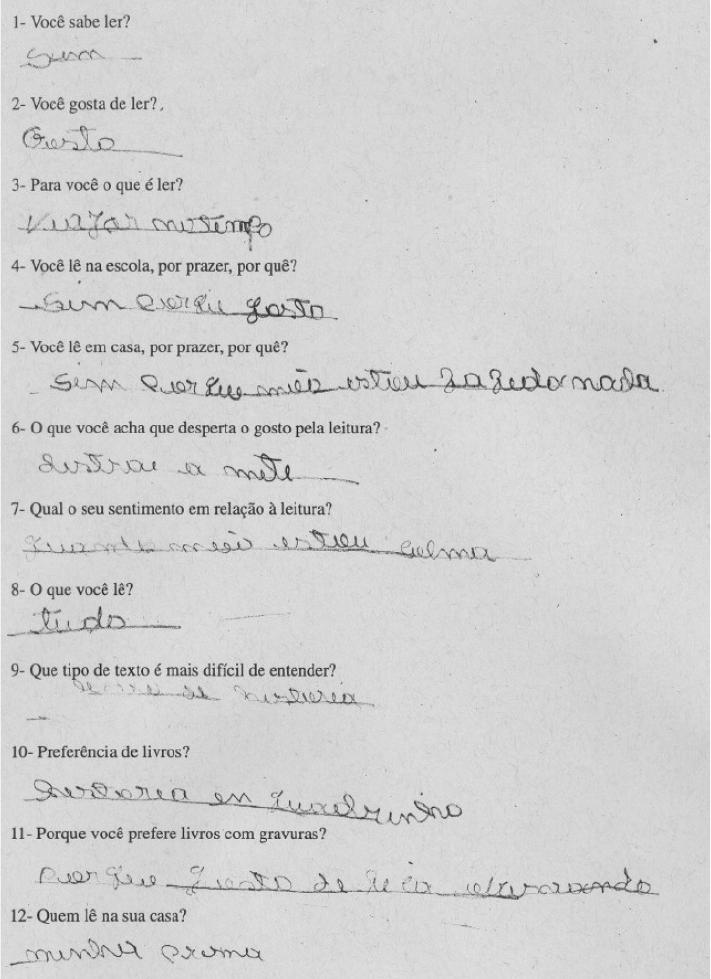 1- Você sabe ler?
Sim
2- Você gosta de ler?
Gosto
3- Para você o que é ler?
Viajar no tempo
4- Você lê na escola, por prazer, por quê?
Sim gosto
5- Você lê em casa, por prazer, por quê?
Sim Porque não estou nada
6- O que você acha que desperta o gosto pela leitura?
a mete
7- Qual o seu sentimento em relação à leitura?
estou
8- O que você lê?
tudo
9- Que tipo de texto é mais difícil de entender?
de
10- Preferência de livros?
em quadrinho
11- Porque você prefere livros com gravuras?
Porque gosto de
12- Quem lê na sua casa?
minha prima